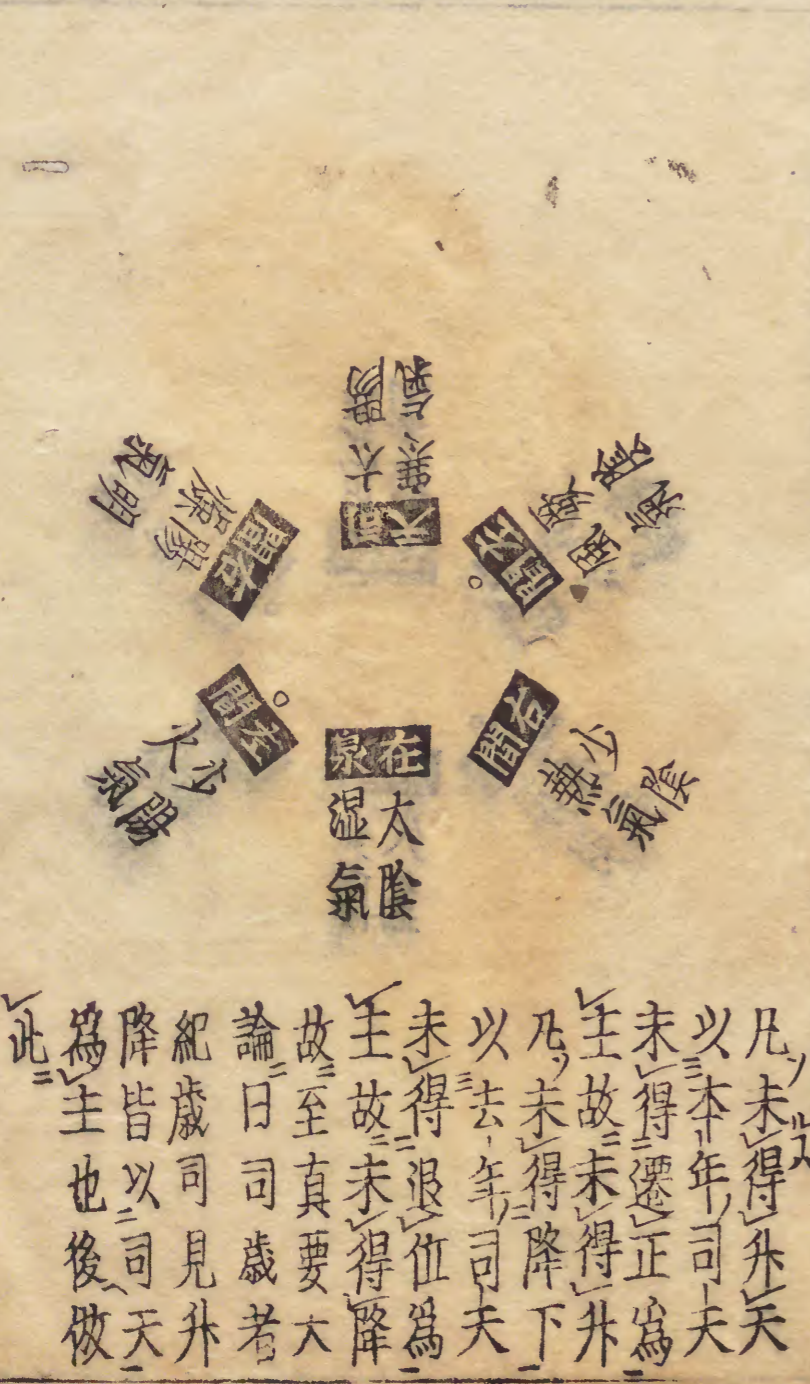 司天
太陽
寒氣
左間
厥陰
風氣
右間
少陰
熱氣
在泉
太陰
湿氣
左間
少陽
火氣
右間
陽明
燥氣
凡未得升天
以本年司天
未得遷正爲
主故未得升
凡未得降下
以去年司天
未得退位爲
主故未得降
故至真要大
論曰司歳者
紀歳司見升
降皆以司天
爲主也後倣
此